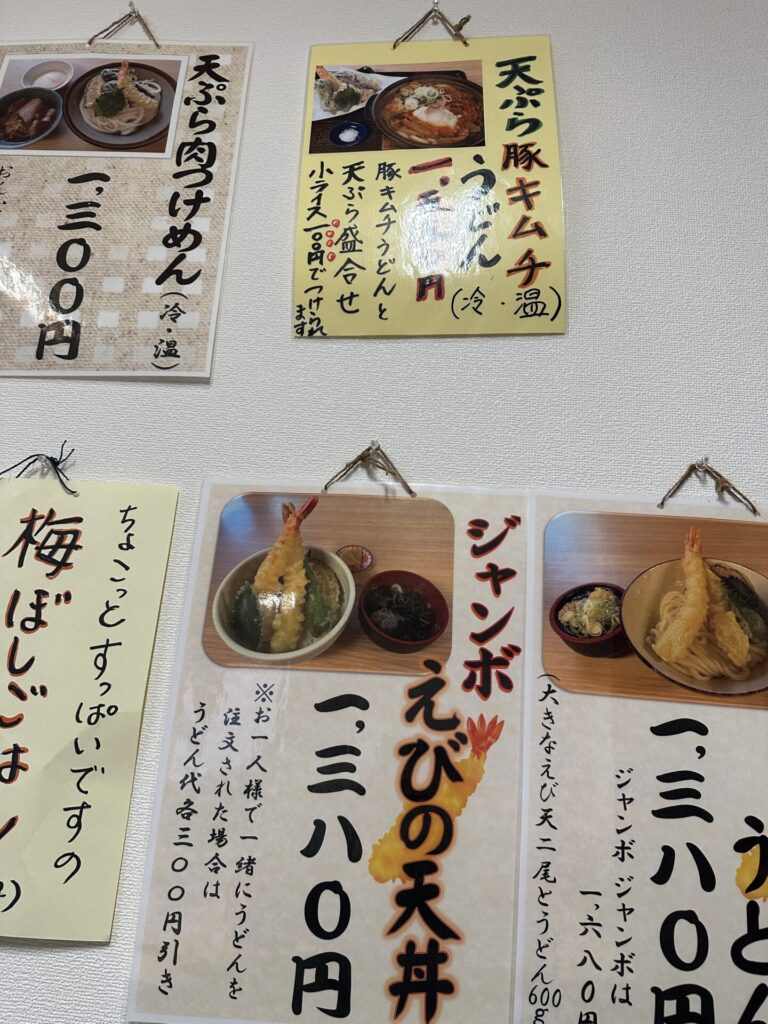 天ぷら肉つけめん
(冷・温)
一,三〇〇円
天ぷら豚キムチ
うどん
(冷・温)
豚キムチうどんと
天ぷら盛合せ
小ライス一〇〇円でつけられ
ます
ちょこっとすっぱいですの
梅ぼしごは
ジャンボ
えびの天丼
一,三八〇円
※お一人様で一緒にうどんを
注文された場合は
うどん代各三〇〇円引き
うどん
一,三八〇円
ジャンボジャンボは
一,六八〇円
(大きなえび天二尾とうどん600g